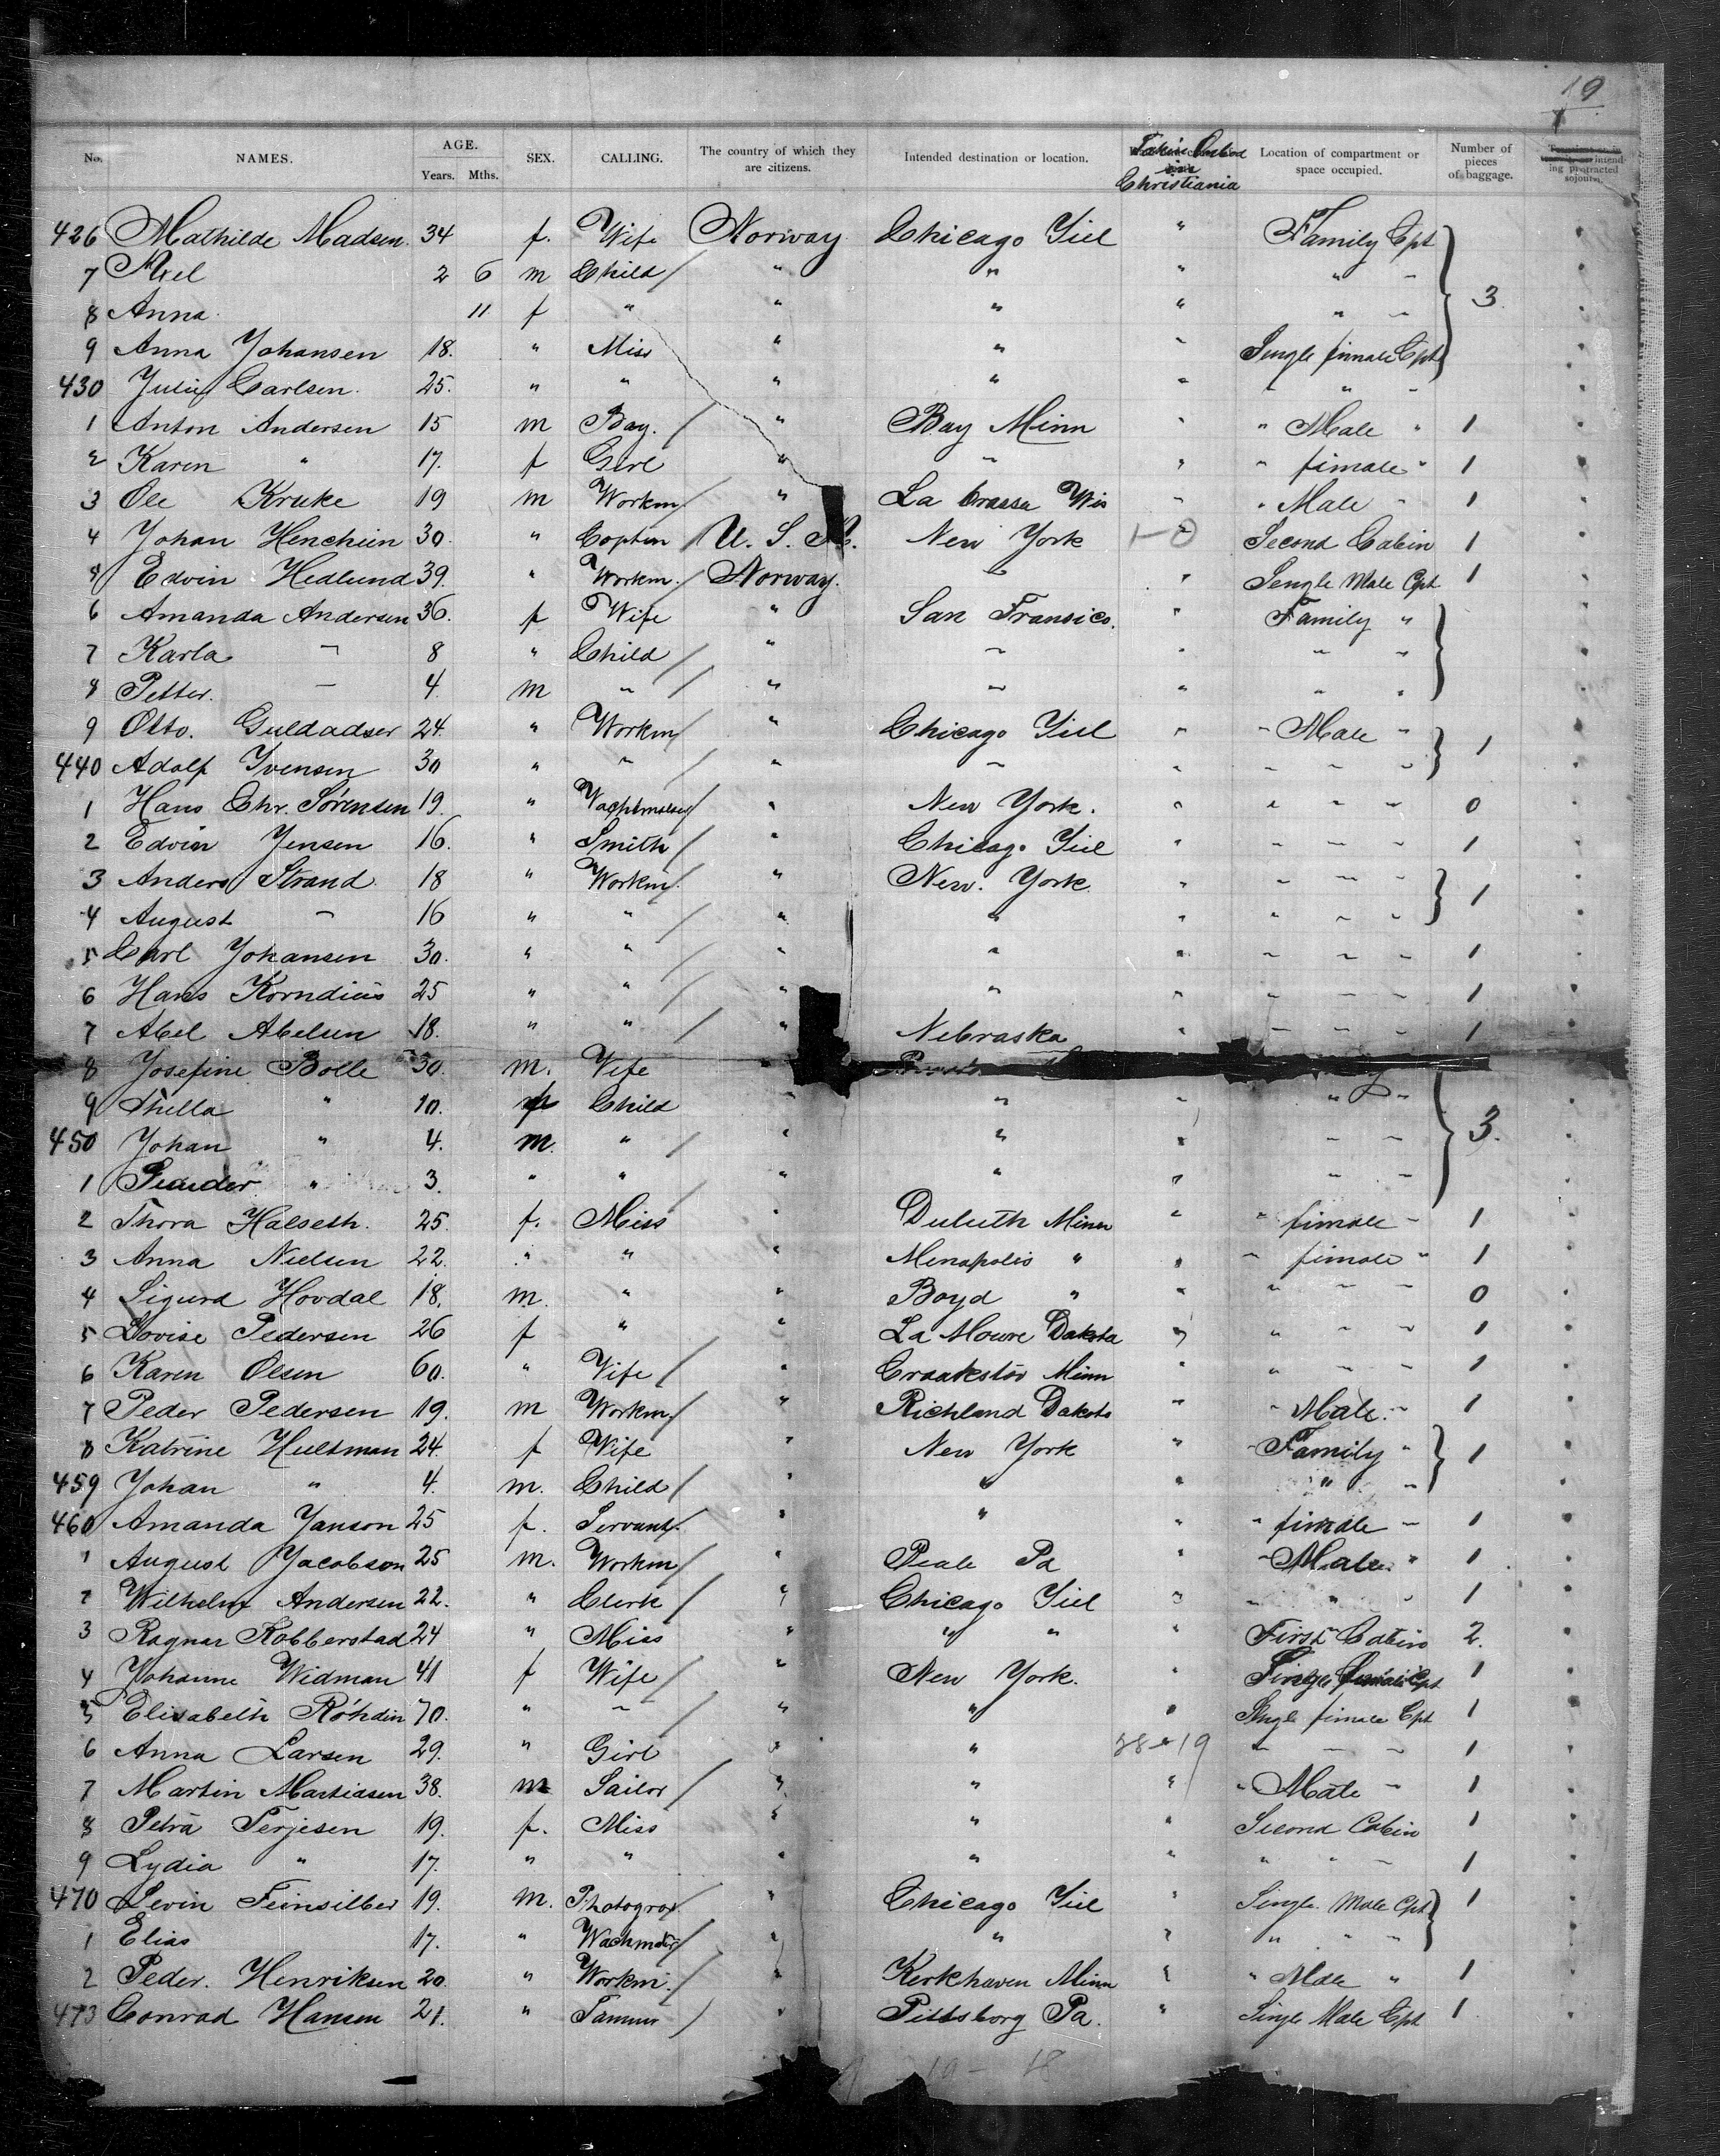 19
No. NAMES. AGE. Years. Mths. SEX. CALLING. The country of which they are citizens. Intended destination or location. Christiania Location of compartment or space occupied. Number of pieces of baggage.
426 Mathilde Madsen. 34 f. Wife Norway Chicago Iill " Family Cpt
7 Axel 2 6 m Child / " " " " " 3
8 Anna. 11 f " " " " " "
9 Anna Johansen 18. " Miss " " " Single fimale Cpt
430 Julie Carlsen. 25. " " " " " " " "
1 Anton Andersen 15 m Boy. / " Bay Minn " " Male " 1
2 Karen " 17. f Girl " " " " fimale " 1
3 Ole Kruke 19 m Workm / " La Crassa Wis " " Male " 1
4 Johan Henchien 30. " Coptin / U. S. A. New York 1-0 Second Cabin 1
5 Edvin Hedlund 39. " Workm. / Norway. " " Sengle Male Cpt 1
6 Amanda Andersen 36. f Wife " San Fransico. " Family "
7 Karla " 8 " Child / " " " " "
8 Petter. " 4. m " / " " " " "
9 Otto. Guldadser 24. " Workm / " Chicago Iill " " Male " 1
440 Adolf Ivensen 30 " " / " " " " " "
1 Hans Chr. Sörensen 19. " / " New York. " " " " 0
2 Edvin Jensen 16. " Smith / " Chicago Iill " " " " 1
3 Anders Strand 18 " Workm. / " New. York. " " " " 1
4 August " 16 " " / " " " " " "
5 Carl Johansen 30. " " / " " " " " " 1
6 Hans Korndiüs 25 " " / " " " " " " 1
7 Abel Abelsen 18. " " / " Nebraska " " " " 1
8 Josefine Bolle 30. m. Wife "
9 Thella " 10. f Child " " " " " 3.
450 Johan " 4. m. " / " " " " "
1 " 3. " " / " " " " "
2 Thora Halseth. 25. f. Miss " Duluth Minn " " fimale " 1
3 Anna Nielsen 22. " " " Menapolis " " " fimale " 1
4 Sigurd Hovdal 18. m. " " Boyd " " " " " 0
5 Lovise Pedersen 26 f " " La Moure Dakota " " " " 1
6 Karen Olsen 60. " Wife / " Craakstöv Minn " " " " 1
7 Peder Pedersen 19. m Workm / " Richland Dakota " " Male. " 1
8 Katrine Hultman 24. f Wife " New York " " Family " 1
459 Johan " 4. m. Child / " " " " "
460 Amanda Janson 25 f. Servant. / " " " " fimale " 1
1 August Jacobson 25 m. Workm / " Peale Pa " " Male. " 1
2 Wilhelm Andersen 22. " Clerk / " Chicago Iill " " " " 1
3 Ragnar Kobberstad 24 " Miss " " " " First Cabin 2.
4 Johanne Widman 41 f Wife / " New York. " Single fimale Cpt 1
5 Elisabeth Röhdin 70. " " / " " " Single fimale Cpt 1
6 Anna Larsen 29. " Girl " " 38-19 " " " 1
7 Martin Martiasen 38. m Sailor / " " " " Male " 1
8 Petra Terjesen 19. f. Miss " " " Second Cabin 1
9 Lydia " 17. " " " " " " " " 1
470 Levin Feinsilber 19. m. Photograf / " Chicago Iill " Single Male Cpt 1
1 Elias 17. " Wachmaker / " " " " " "
2 Peder. Henriksen 20. " Workm. / " Kerkhaven Minn " " Male " 1
473 Conrad Hansen 21. " / " Pittsborg Pa. " Single Male Cpt 1
19 - 18